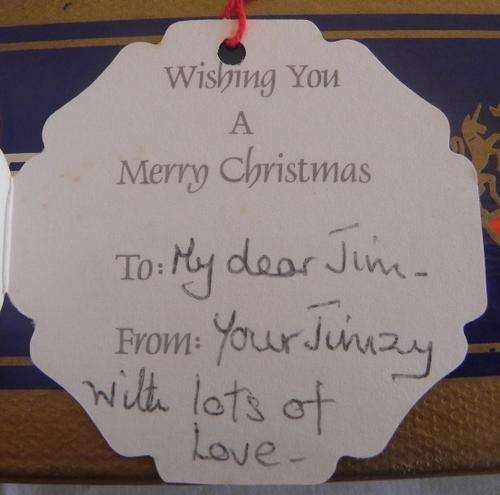 Wishing You
A
Merry Christmas
To: My dear Jim -
From: Your Jimzy
With lots of
Love -